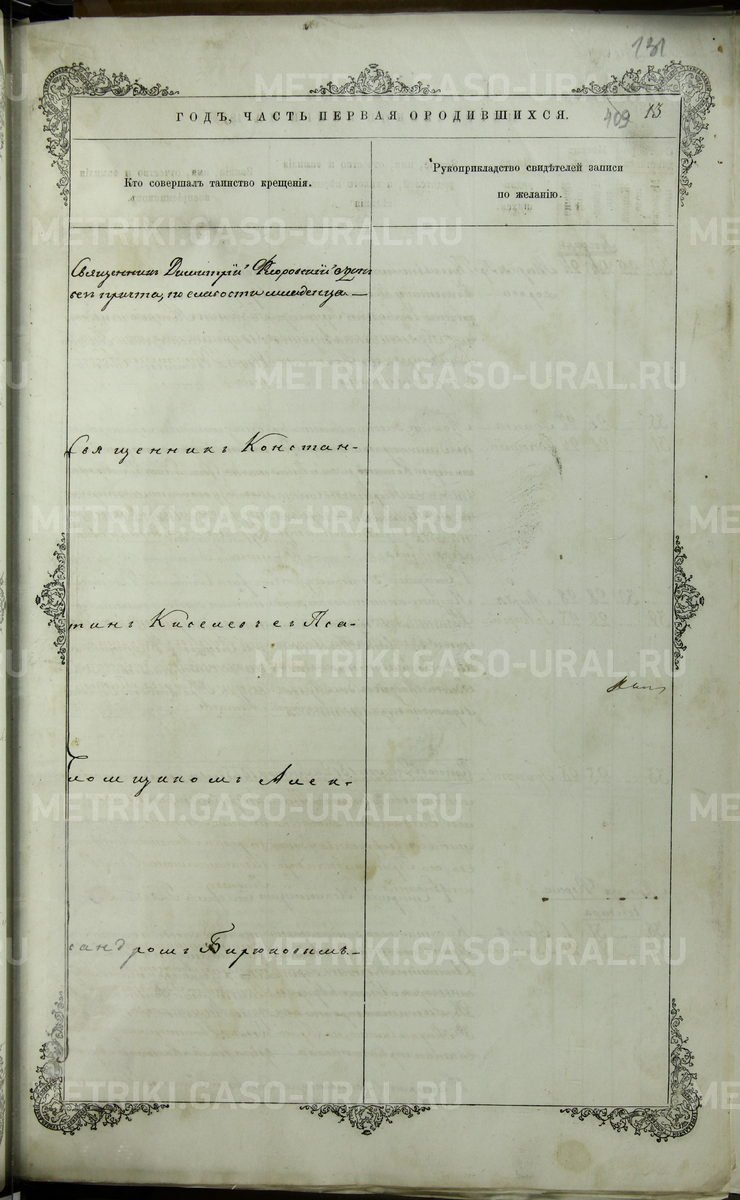 131
409 13
ГОДЪ, ЧАСТЬ ПЕРВАЯ О РОДИВШИХСЯ.
Кто совершалъ таинство крещенія.
Рукоприкладство свидѣтелей записи
по желанію.
Священникъ Димитрій
безъ причта, по слабости младенца.—
Священникъ Констан-
тинъ Киселевъ съ Пса-
ломщикомъ Алек-
сандромъ Бирюковымъ.—
METRIKI.GASO-URAL.RU